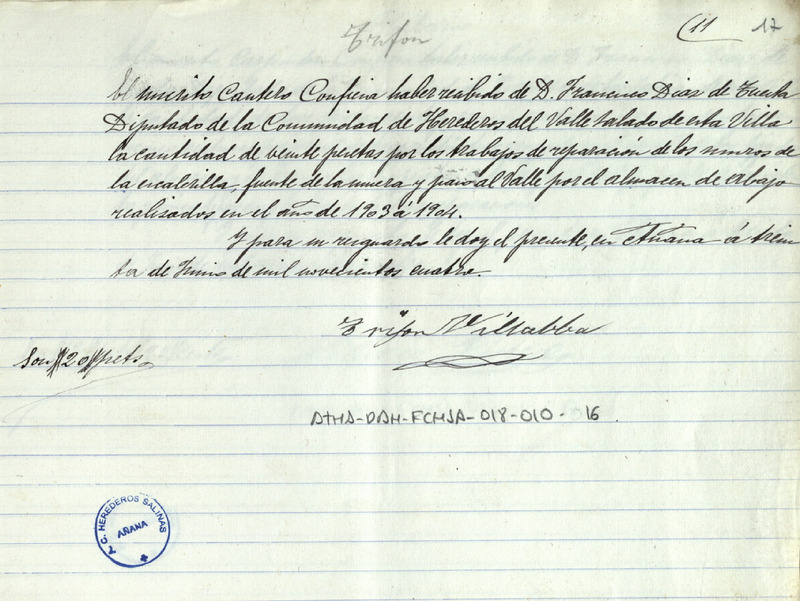 Trifon
(11 17
El inscrito Cantero Confiesa haber recibido de D. Francisco Diaz de Tuesta
Diputado de la Comunidad de Herederos del Valle salado de esta Villa
la cantidad de veinte pesetas por los trabajos de reparación de los muros de
la escalerilla, fuente de la muera y paso al Valle por el almacen de abajo
realizados en el año de 1903 á 1904.
Y para su resguardo le doy el presente, en Añana á trein
ta de Junio de mil novecientos cuatro.
Trifon Villabba
Son 20 pets
ATHA-DAH-FCHSA-018-010-16
C. HEREDEROS SALINAS
AÑANA